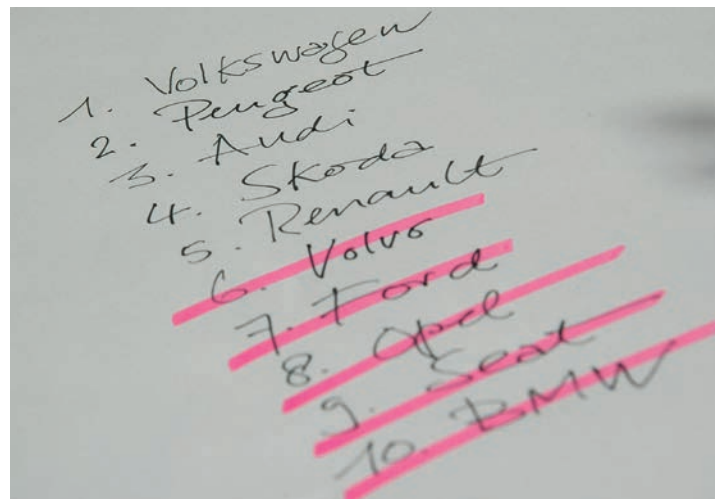 1. Volkswagen
2. Peugeot
3. Audi
4. Skoda
5. Renault
6. Volvo
7. Ford
8. Opel
9. Seat
10. BMW